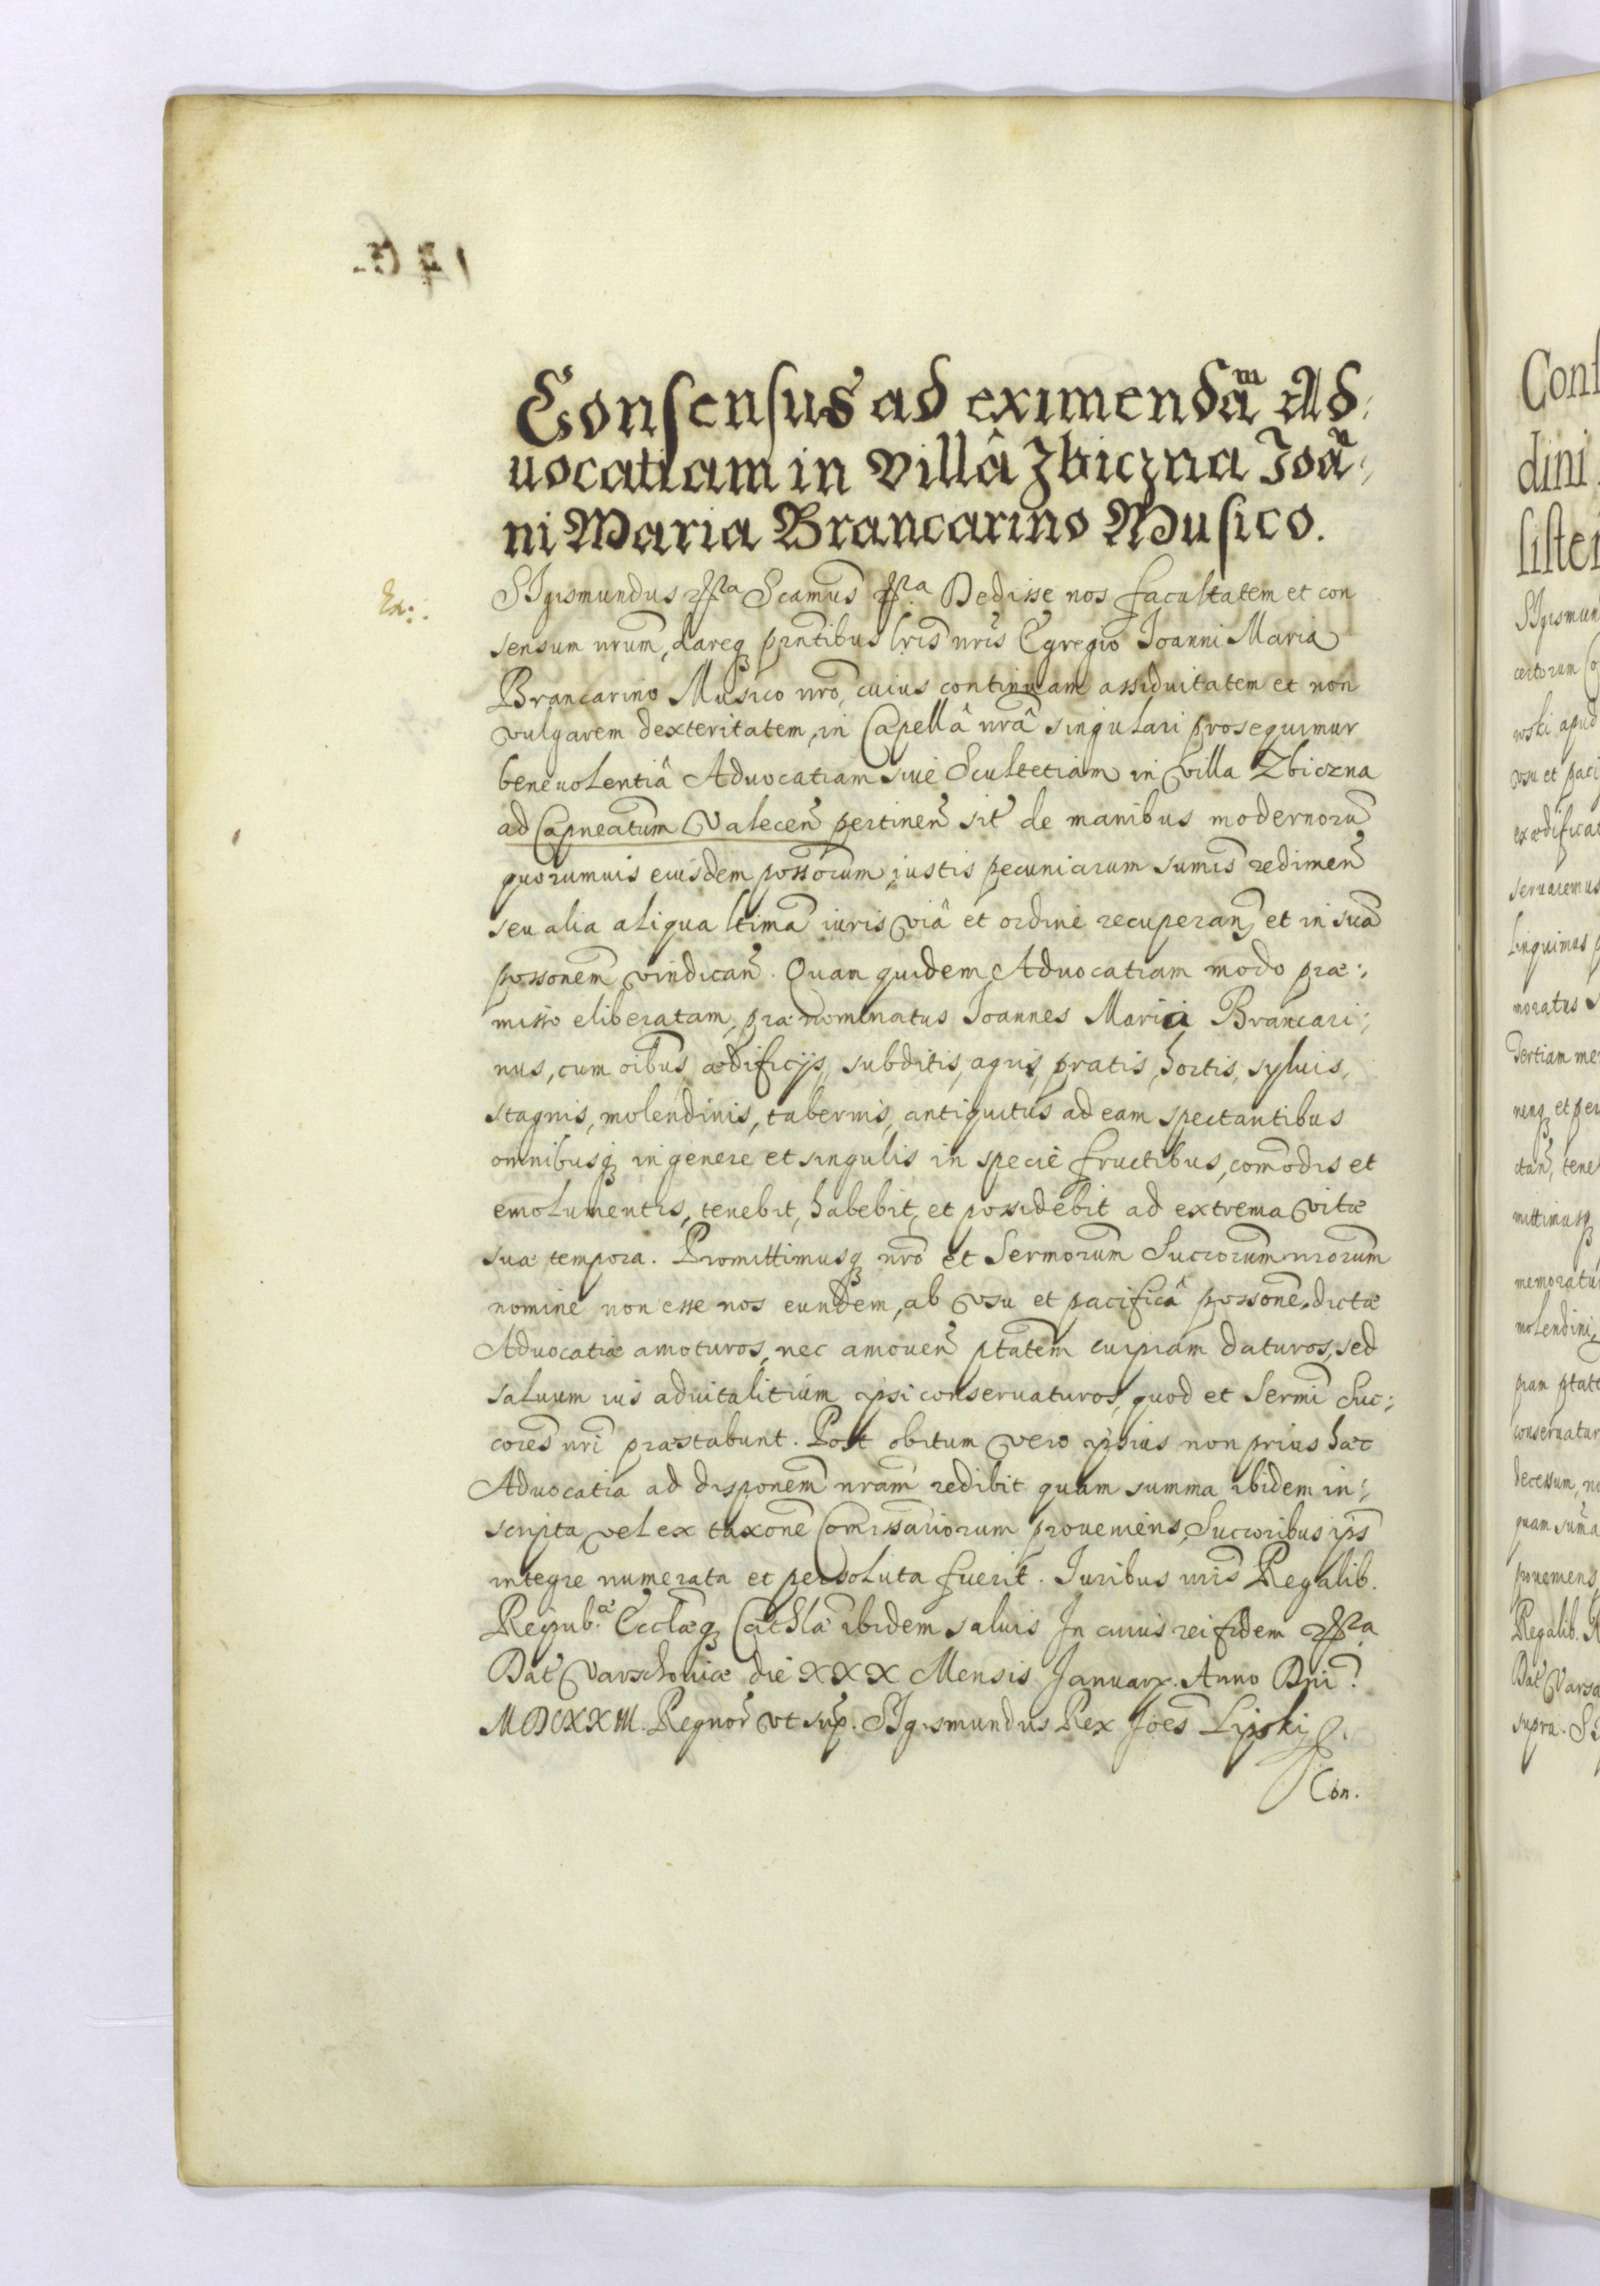 Consensus ad eximendam Ad:
uocatiam in Villâ Zbiczna Ioan,
ni Maria Brancarino Musico.
Ex:
SIgismundus Scamus Dedisse nos facultatem et con
sensum nrum, dareq pntibus lris nris Egregio Ioanni Maria
Brancarino Musico nro, cuius continuam assiduitatem et non
vulgarem dexteritatem, in Capellâ nrâ singulari prosequimur
beneuolentiâ Aduocatiam siue Scultetiam in villa Zbiczna
ad Capneatum Valecen pertinen sit de manibus modernoru
quorumuis eiusdem possorum, iustis pecuniarum sumis redimen
seu alia aliqua ltima iuris viâ et ordine recuperan, et in sua
possonem vindican. Quan quidem Aduocatiam modo præ:
misso eliberatam, prænominatus Ioannes Maria Brancari:
nus, cum oibus ædificijs, subditis, agris, pratis, hortis, syluis,
stagnis, molendinis, tabernis, antiquitus ad eam spectantibus
omnibusq in genere et singulis in specie fructibus, comodis et
emolumentis, tenebit, habebit, et possidebit ad extrema vitæ
suæ tempora. Promittimusq nro et Sermorum Succrorum nrorum
nomine non esse nos eundem, ab vsu et pacificâ possone dictæ
Aduocatiæ amoturos, nec amouen ptatem cuipiam daturos, sed
saluum ius aduitalitium ipsi conseruaturos, quod et Sermi Suc:
cores nri præstabunt. Post obitum vero ipsius non prius hæc
Aduocatia ad disponem nram redibit quam summa ibidem in:
scripta, vel ex taxone Comissariorum proueniens, Succoribus ips
integre numerata et persoluta fuerit. Iuribus nris Regalib.
Reipub. Ecclæq Cathlæ ibidem saluis In cuius rei fidem
Dat Varschouiæ die XXX Mensis Januarij. Anno Dni
MDCXXIII. Regnor vt sup. SIgismundus Rex Joes Lipski
Con.